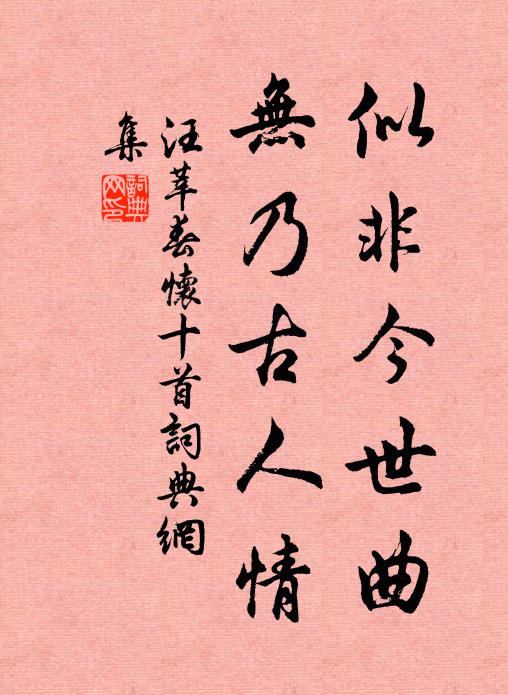 似非今世曲
無乃古人情
汪莘春懷十首詞典網
集
詞典
网印